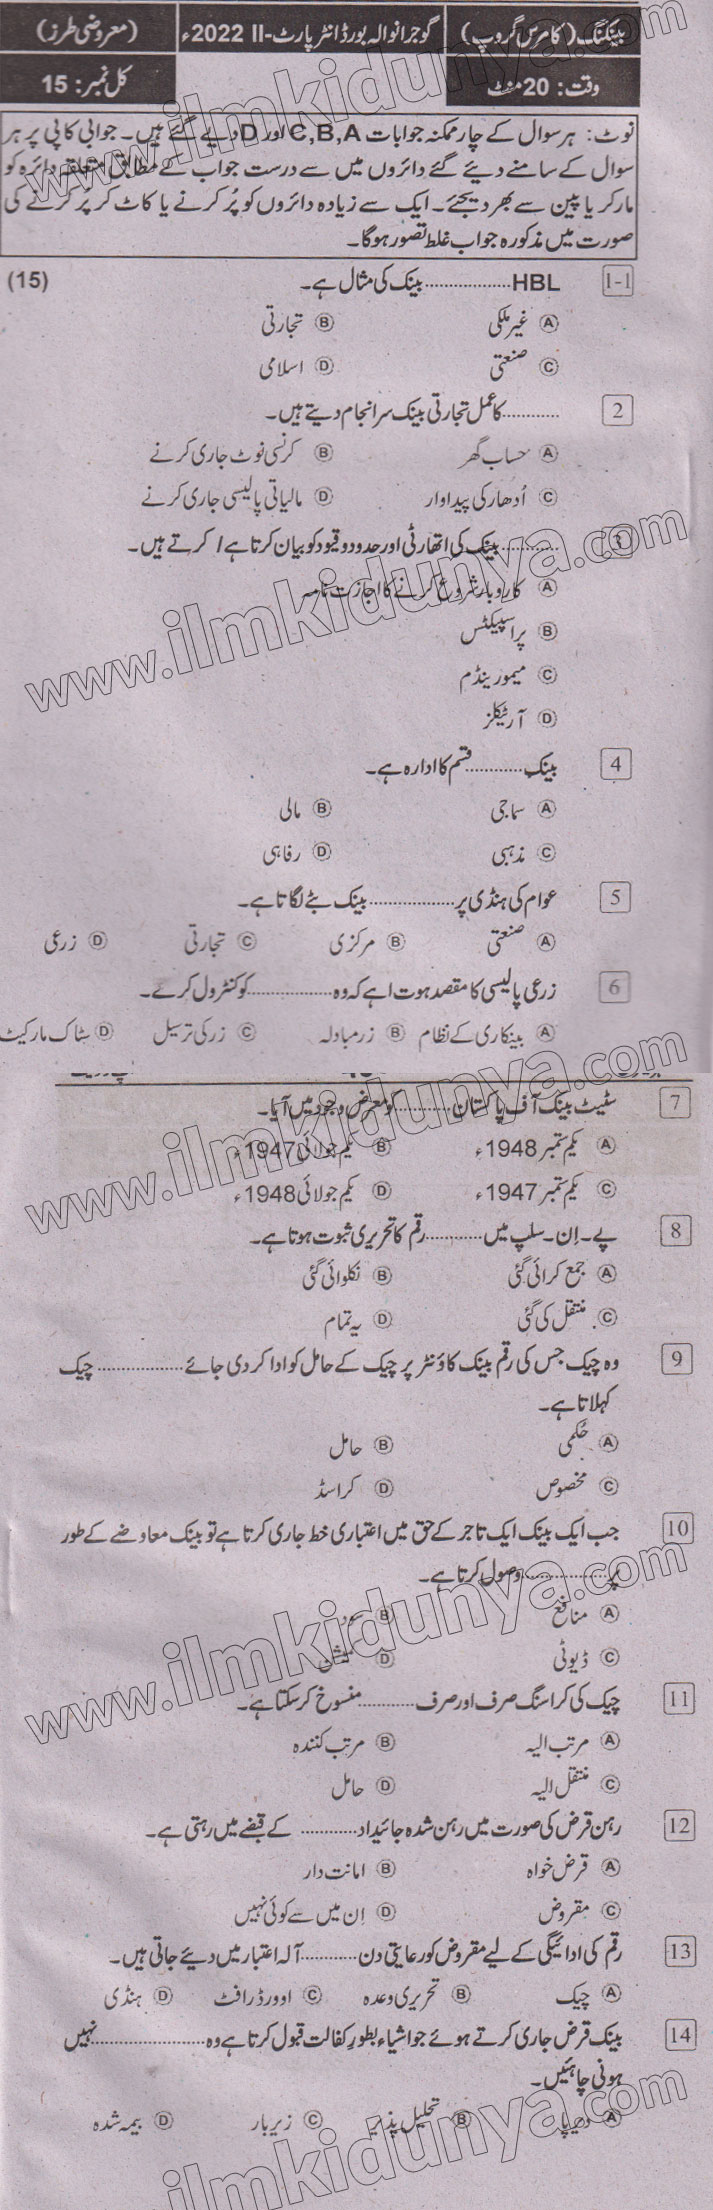 بینکنگ (کامرس گروپ)
گوجرانوالہ بورڈ انٹر پارٹ-II 2022ء
(معروضی طرز)
وقت: 20 منٹ
کل نمبر: 15
نوٹ: ہر سوال کے چار ممکنہ جوابات C,B,A اور D دیے گئے ہیں۔ جوابی کاپی پر ہر
سوال کے سامنے دیئے گئے دائروں میں سے درست جواب کے مطابق متعلقہ دائرہ کو
مارکر یا پین سے بھر دیجئے۔ ایک سے زیادہ دائروں کو پُر کرنے یا کاٹ کر پُر کرنے کی
صورت میں مذکورہ جواب غلط تصور ہوگا۔
1-1 HBL .................. بینک کی مثال ہے۔ (15)
Ⓐ غیر ملکی Ⓑ تجارتی
Ⓒ صنعتی Ⓓ اسلامی
2 ............ کا عمل تجارتی بینک سرانجام دیتے ہیں۔
Ⓐ حساب گھر Ⓑ کرنسی نوٹ جاری کرنے
Ⓒ اُدھار کی پیداوار Ⓓ مالیاتی پالیسی جاری کرنے
3 ............ بینک کی اتھارٹی اور حدود و قیود کو بیان کرتا ہے / کرتے ہیں۔
Ⓐ کاروبار شروع کرنے کا اجازت نامہ
Ⓑ پراسپیکٹس
Ⓒ میمورینڈم
Ⓓ آرٹیکلز
4 بینک ............ قسم کا ادارہ ہے۔
Ⓐ سماجی Ⓑ مالی
Ⓒ مذہبی Ⓓ رفاہی
5 عوام کی ہنڈی پر .................. بینک بٹے لگاتا ہے۔
Ⓐ صنعتی Ⓑ مرکزی Ⓒ تجارتی Ⓓ زرعی
6 زرعی پالیسی کا مقصد ہوتا ہے کہ وہ .................. کو کنٹرول کرے۔
Ⓐ بینکاری کے نظام Ⓑ زرمبادلہ Ⓒ زر کی ترسیل Ⓓ سٹاک مارکیٹ
7 سٹیٹ بینک آف پاکستان ............ کو معرض وجود میں آیا۔
Ⓐ یکم ستمبر 1948ء Ⓑ یکم جولائی 1947ء
Ⓒ یکم ستمبر 1947ء Ⓓ یکم جولائی 1948ء
8 پے۔اِن۔سلپ میں ............ رقم کا تحریری ثبوت ہوتا ہے۔
Ⓐ جمع کرائی گئی Ⓑ نکلوائی گئی
Ⓒ منتقل کی گئی Ⓓ یہ تمام
9 وہ چیک جس کی رقم بینک کاؤنٹر پر چیک کے حامل کو ادا کر دی جائے .................. چیک
کہلاتا ہے۔
Ⓐ حُکمی Ⓑ حامل
Ⓒ مخصوص Ⓓ کراسڈ
10 جب ایک بینک ایک تاجر کے حق میں اعتباری خط جاری کرتا ہے تو بینک معاوضے کے طور
پر .................. وصول کرتا ہے۔
Ⓐ منافع Ⓑ سود
Ⓒ ڈیوٹی Ⓓ کمیشن
11 چیک کی کراسنگ صرف اور صرف ............ منسوخ کر سکتا ہے۔
Ⓐ مرتب الیہ Ⓑ مرتب کنندہ
Ⓒ منتقل الیہ Ⓓ حامل
12 رہن قرض کی صورت میں رہن شدہ جائیداد ............ کے قبضے میں رہتی ہے۔
Ⓐ قرض خواہ Ⓑ امانت دار
Ⓒ مقروض Ⓓ اِن میں سے کوئی نہیں
13 رقم کی ادائیگی کے لیے مقروض کو رعایتی دن ............ آلہ اعتبار میں دیئے جاتی ہیں۔
Ⓐ چیک Ⓑ تحریری وعدہ Ⓒ اوورڈرافٹ Ⓓ ہنڈی
14 بینک قرض جاری کرتے ہوئے جو اشیاء بطور کفالت قبول کرتا ہے وہ .................. نہیں
ہونی چاہئیں۔
Ⓐ دیرپا Ⓑ تحلیل پذیر Ⓒ زیر بار Ⓓ بیمہ شدہ
www.ilmkidunya.com
www.ilmkidunya.com
www.ilmkidunya.com
www.ilmkidunya.com
www.ilmkidunya.com